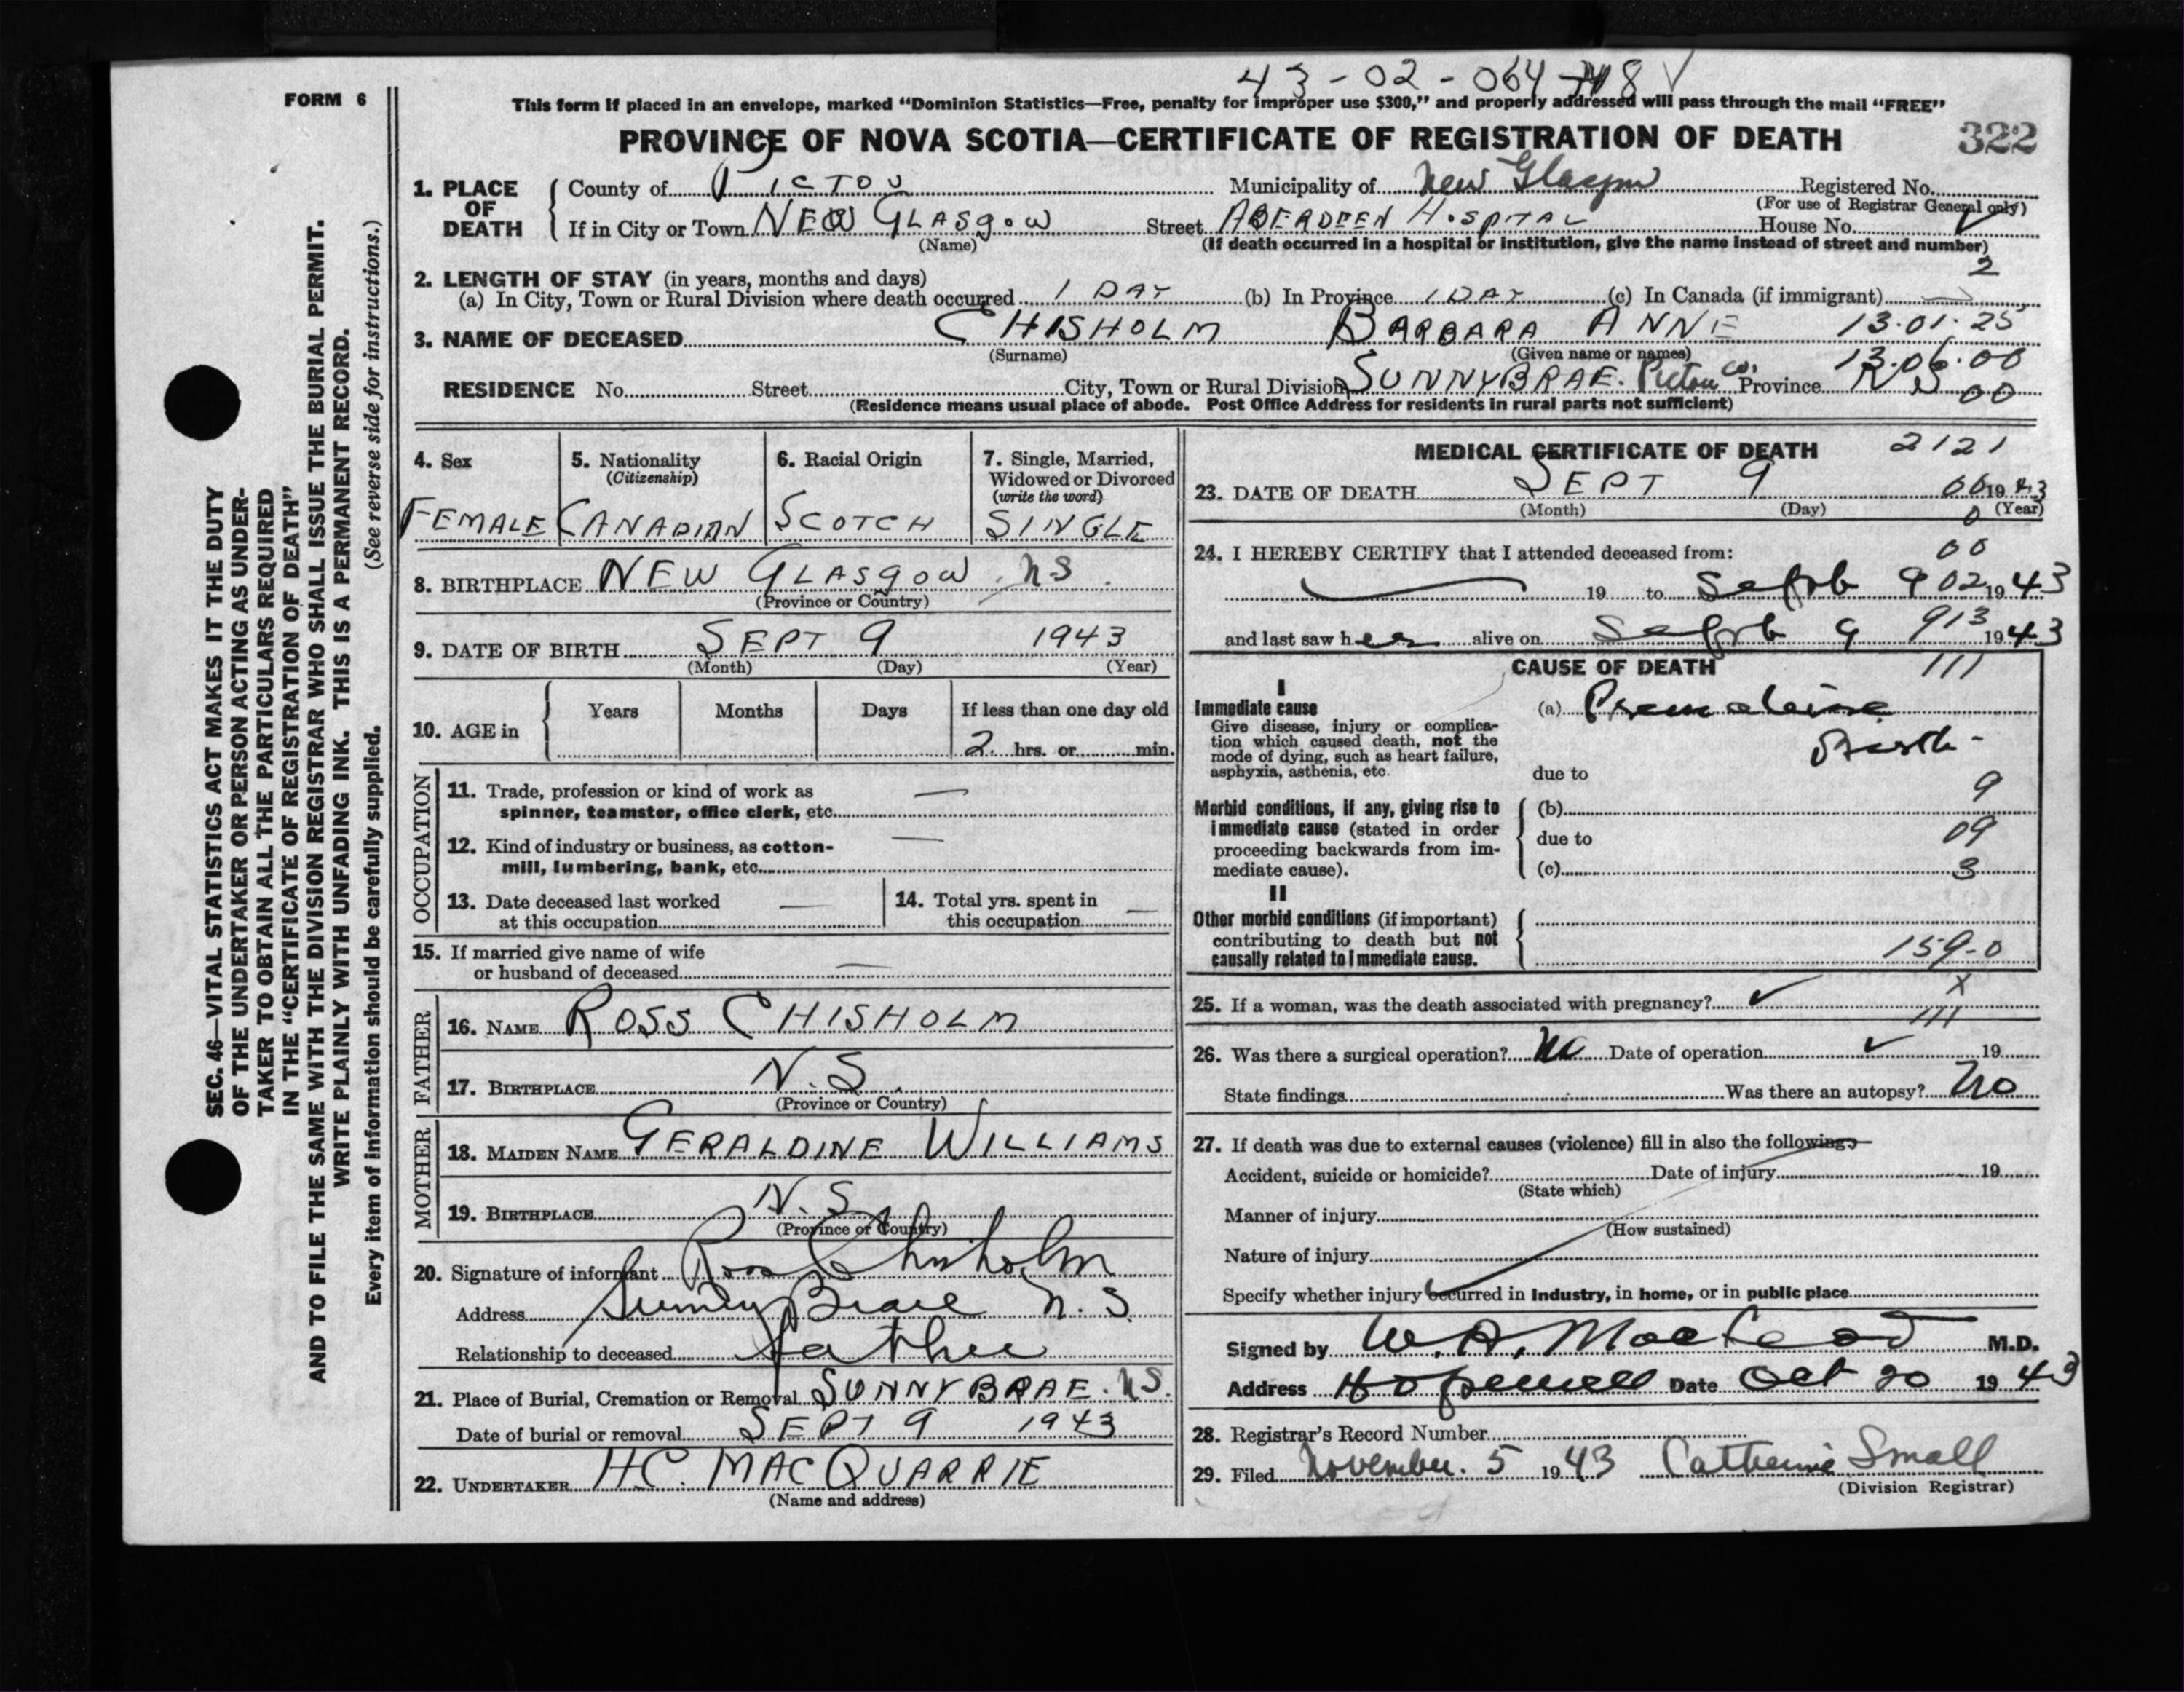 43-02-064
FORM 6
This form if placed in an envelope, marked "Dominion Statistics—Free, penalty for improper use $300," and properly addressed will pass through the mail "FREE"
PROVINCE OF NOVA SCOTIA—CERTIFICATE OF REGISTRATION OF DEATH 322
1. PLACE OF DEATH
County of PICTOU Municipality of New Glasgow Registered No.
(For use of Registrar General only)
If in City or Town NEW GLASGOW Street ABERDEEN HOSPITAL House No.
(Name) (If death occurred in a hospital or institution, give the name instead of street and number)
2
2. LENGTH OF STAY (in years, months and days)
(a) In City, Town or Rural Division where death occurred 1 DAY (b) In Province 1 DAY (c) In Canada (if immigrant) —
3. NAME OF DECEASED CHISHOLM BARBARA ANNE 13.01.25
(Surname) (Given name or names) 13.06.00
RESIDENCE No. Street City, Town or Rural Division SUNNYBRAE. Pictou Co. Province N S 00
(Residence means usual place of abode. Post Office Address for residents in rural parts not sufficient)
4. Sex
FEMALE
5. Nationality
(Citizenship)
CANADIAN
6. Racial Origin
SCOTCH
7. Single, Married,
Widowed or Divorced
(write the word)
SINGLE
8. BIRTHPLACE NEW GLASGOW, N.S.
(Province or Country)
9. DATE OF BIRTH SEPT 9 1943
(Month) (Day) (Year)
10. AGE in
Years Months Days If less than one day old
2 hrs. or min.
OCCUPATION
11. Trade, profession or kind of work as —
spinner, teamster, office clerk, etc.
12. Kind of industry or business, as cotton- —
mill, lumbering, bank, etc.
13. Date deceased last worked —
at this occupation
14. Total yrs. spent in —
this occupation
15. If married give name of wife —
or husband of deceased
FATHER
16. NAME ROSS CHISHOLM
17. BIRTHPLACE N.S.
(Province or Country)
MOTHER
18. MAIDEN NAME GERALDINE WILLIAMS
19. BIRTHPLACE N.S
(Province or Country)
20. Signature of informant Ross Chisholm
Address Sunny Brae N.S.
Relationship to deceased father
21. Place of Burial, Cremation or Removal SUNNYBRAE. N.S.
Date of burial or removal SEPT 9 1943
22. UNDERTAKER H.C. MACQUARRIE
(Name and address)
MEDICAL CERTIFICATE OF DEATH 2121
23. DATE OF DEATH SEPT 9 00 1943
(Month) (Day) 0 (Year)
24. I HEREBY CERTIFY that I attended deceased from: 00
19 to Sept 9 02 1943
and last saw her alive on Sept 9 913 1943
CAUSE OF DEATH 111
I
Immediate cause
Give disease, injury or complica-
tion which caused death, not the
mode of dying, such as heart failure,
asphyxia, asthenia, etc.
(a) Premature
Birth -
due to
9
Morbid conditions, if any, giving rise to
immediate cause (stated in order
proceeding backwards from im-
mediate cause).
(b)
due to 09
(c) 3
II
Other morbid conditions (if important)
contributing to death but not
causally related to immediate cause.
159-0
25. If a woman, was the death associated with pregnancy? ✓ X
111
26. Was there a surgical operation? No Date of operation ✓ 19
State findings Was there an autopsy? No
27. If death was due to external causes (violence) fill in also the following:
Accident, suicide or homicide? Date of injury 19
(State which)
Manner of injury
(How sustained)
Nature of injury
Specify whether injury occurred in industry, in home, or in public place
Signed by W. A. MacLeod M.D.
Address Hopewell Date Oct 20 1943
28. Registrar's Record Number
29. Filed November. 5 1943 Catherine Small
(Division Registrar)
SEC. 46—VITAL STATISTICS ACT MAKES IT THE DUTY
OF THE UNDERTAKER OR PERSON ACTING AS UNDER-
TAKER TO OBTAIN ALL THE PARTICULARS REQUIRED
IN THE "CERTIFICATE OF REGISTRATION OF DEATH"
AND TO FILE THE SAME WITH THE DIVISION REGISTRAR WHO SHALL ISSUE THE BURIAL PERMIT.
WRITE PLAINLY WITH UNFADING INK. THIS IS A PERMANENT RECORD.
Every item of information should be carefully supplied. (See reverse side for instructions.)